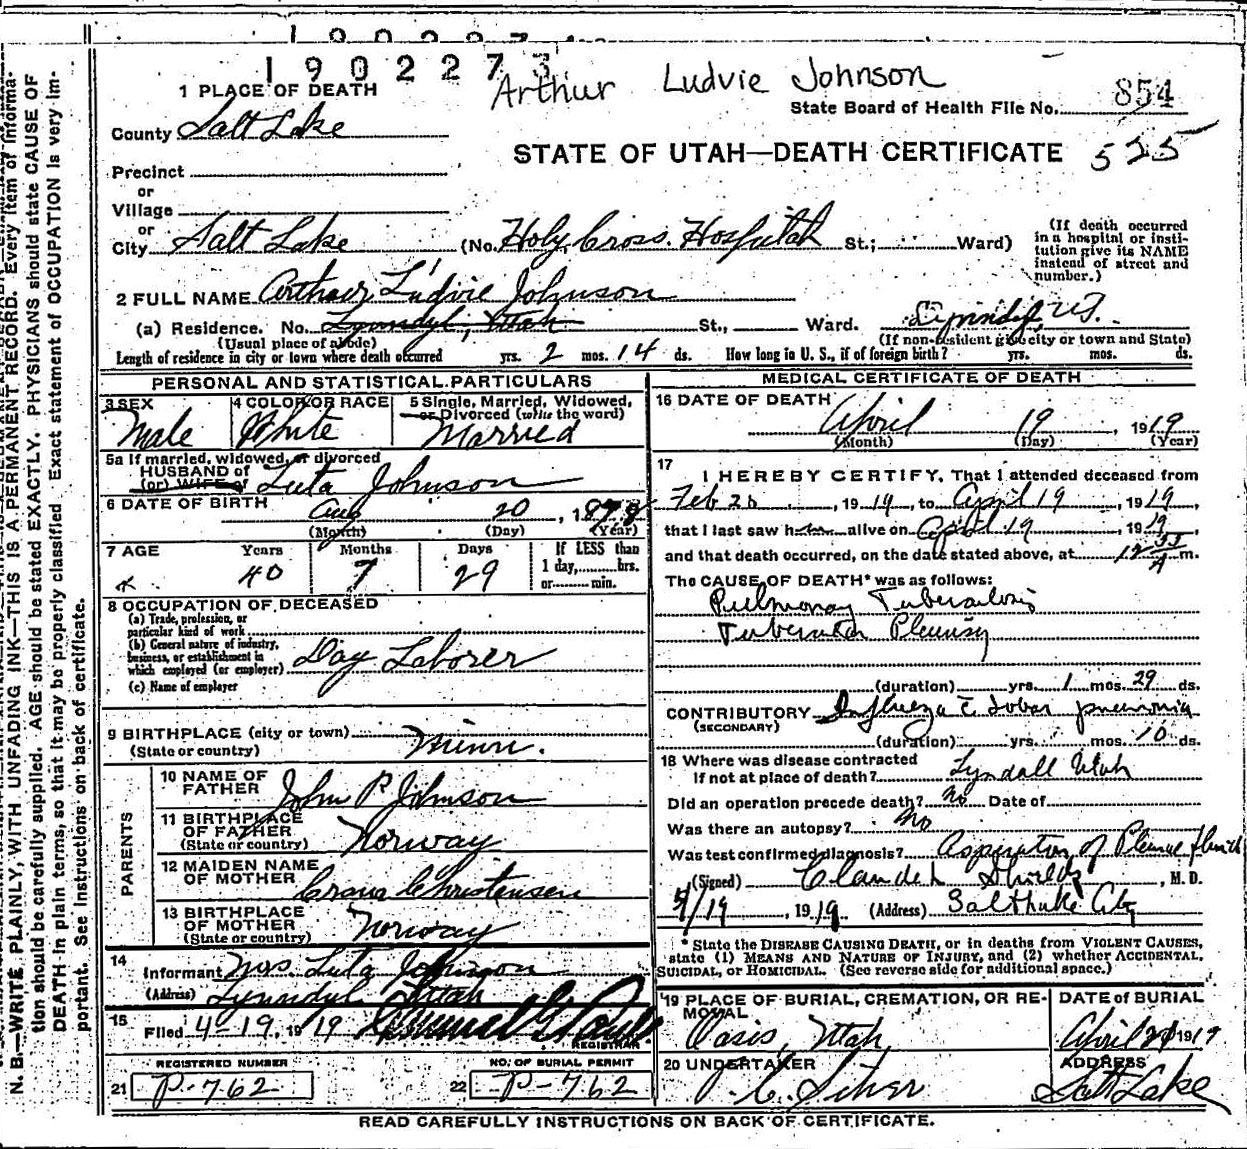 1902273
Arthur Ludvie Johnson
1 PLACE OF DEATH
State Board of Health File No. 854
County Salt Lake
STATE OF UTAH—DEATH CERTIFICATE 525
Precinct
or
Village
or
City Salt Lake (No. Holy Cross Hospital St.; Ward)
(If death occurred in a hospital or insti-
tution give its NAME
instead of street and
number.)
2 FULL NAME Arthur Ludvie Johnson
(a) Residence. No. Lynndyl, Utah St., Ward. Lynndyl, UT.
(Usual place of abode) (If non-resident give city or town and State)
Length of residence in city or town where death occurred yrs. 2 mos. 14 ds. How long in U. S., if of foreign birth? yrs. mos. ds.
PERSONAL AND STATISTICAL PARTICULARS
3 SEX
Male
4 COLOR OR RACE
White
5 Single, Married, Widowed,
or Divorced (write the word)
Married
5a If married, widowed, or divorced
HUSBAND of
(or) WIFE of Luta Johnson
6 DATE OF BIRTH
Aug 20, 1878
(Month) (Day) (Year)
7 AGE Years Months Days If LESS than
1 day, hrs.
or min.
40 7 29
8 OCCUPATION OF DECEASED
(a) Trade, profession, or
particular kind of work
(b) General nature of industry,
business, or establishment in
which employed (or employer) Day Laborer
(c) Name of employer
9 BIRTHPLACE (city or town)
(State or country) Minn.
PARENTS
10 NAME OF
FATHER John P Johnson
11 BIRTHPLACE
OF FATHER
(State or country) Norway
12 MAIDEN NAME
OF MOTHER Christensen
13 BIRTHPLACE
OF MOTHER
(State or country) Norway
14
Informant Mrs. Luta Johnson
(Address) Lynndyl Utah
15
Filed 4-19, 1919
REGISTRAR
REGISTERED NUMBER
21 P-762
NO. OF BURIAL PERMIT
22 P-762
MEDICAL CERTIFICATE OF DEATH
16 DATE OF DEATH
April 19, 1919
(Month) (Day) (Year)
17
I HEREBY CERTIFY, That I attended deceased from
Feb 20, 1919, to April 19, 1919,
that I last saw him alive on April 19, 1919,
and that death occurred, on the date stated above, at 12 A m.
The CAUSE OF DEATH* was as follows:
Pulmonary Tuberculosis
Tubercular Pleurisy
(duration) yrs. 1 mos. 29 ds.
CONTRIBUTORY Influenza c̄ Lobar pneumonia
(SECONDARY)
(duration) yrs. mos. 10 ds.
18 Where was disease contracted
if not at place of death? Lyndall Utah
Did an operation precede death? No Date of
Was there an autopsy? No
Was test confirmed diagnosis? Aspiration of Pleural fluid
(Signed) Claude L Shields, M. D.
4/19, 1919. (Address) Salt Lake City
* State the DISEASE CAUSING DEATH, or in deaths from VIOLENT CAUSES,
state (1) MEANS AND NATURE OF INJURY, and (2) whether ACCIDENTAL,
SUICIDAL, or HOMICIDAL. (See reverse side for additional space.)
19 PLACE OF BURIAL, CREMATION, OR RE-
MOVAL
Oasis, Utah
DATE of BURIAL
April 21 1919
20 UNDERTAKER
ADDRESS
Salt Lake
READ CAREFULLY INSTRUCTIONS ON BACK OF CERTIFICATE.
N. B.—WRITE PLAINLY, WITH UNFADING INK—THIS IS A PERMANENT RECORD. Every item of informa-
tion should be carefully supplied. AGE should be stated EXACTLY. PHYSICIANS should state CAUSE OF
DEATH in plain terms, so that it may be properly classified. Exact statement of OCCUPATION is very im-
portant. See instructions on back of certificate.